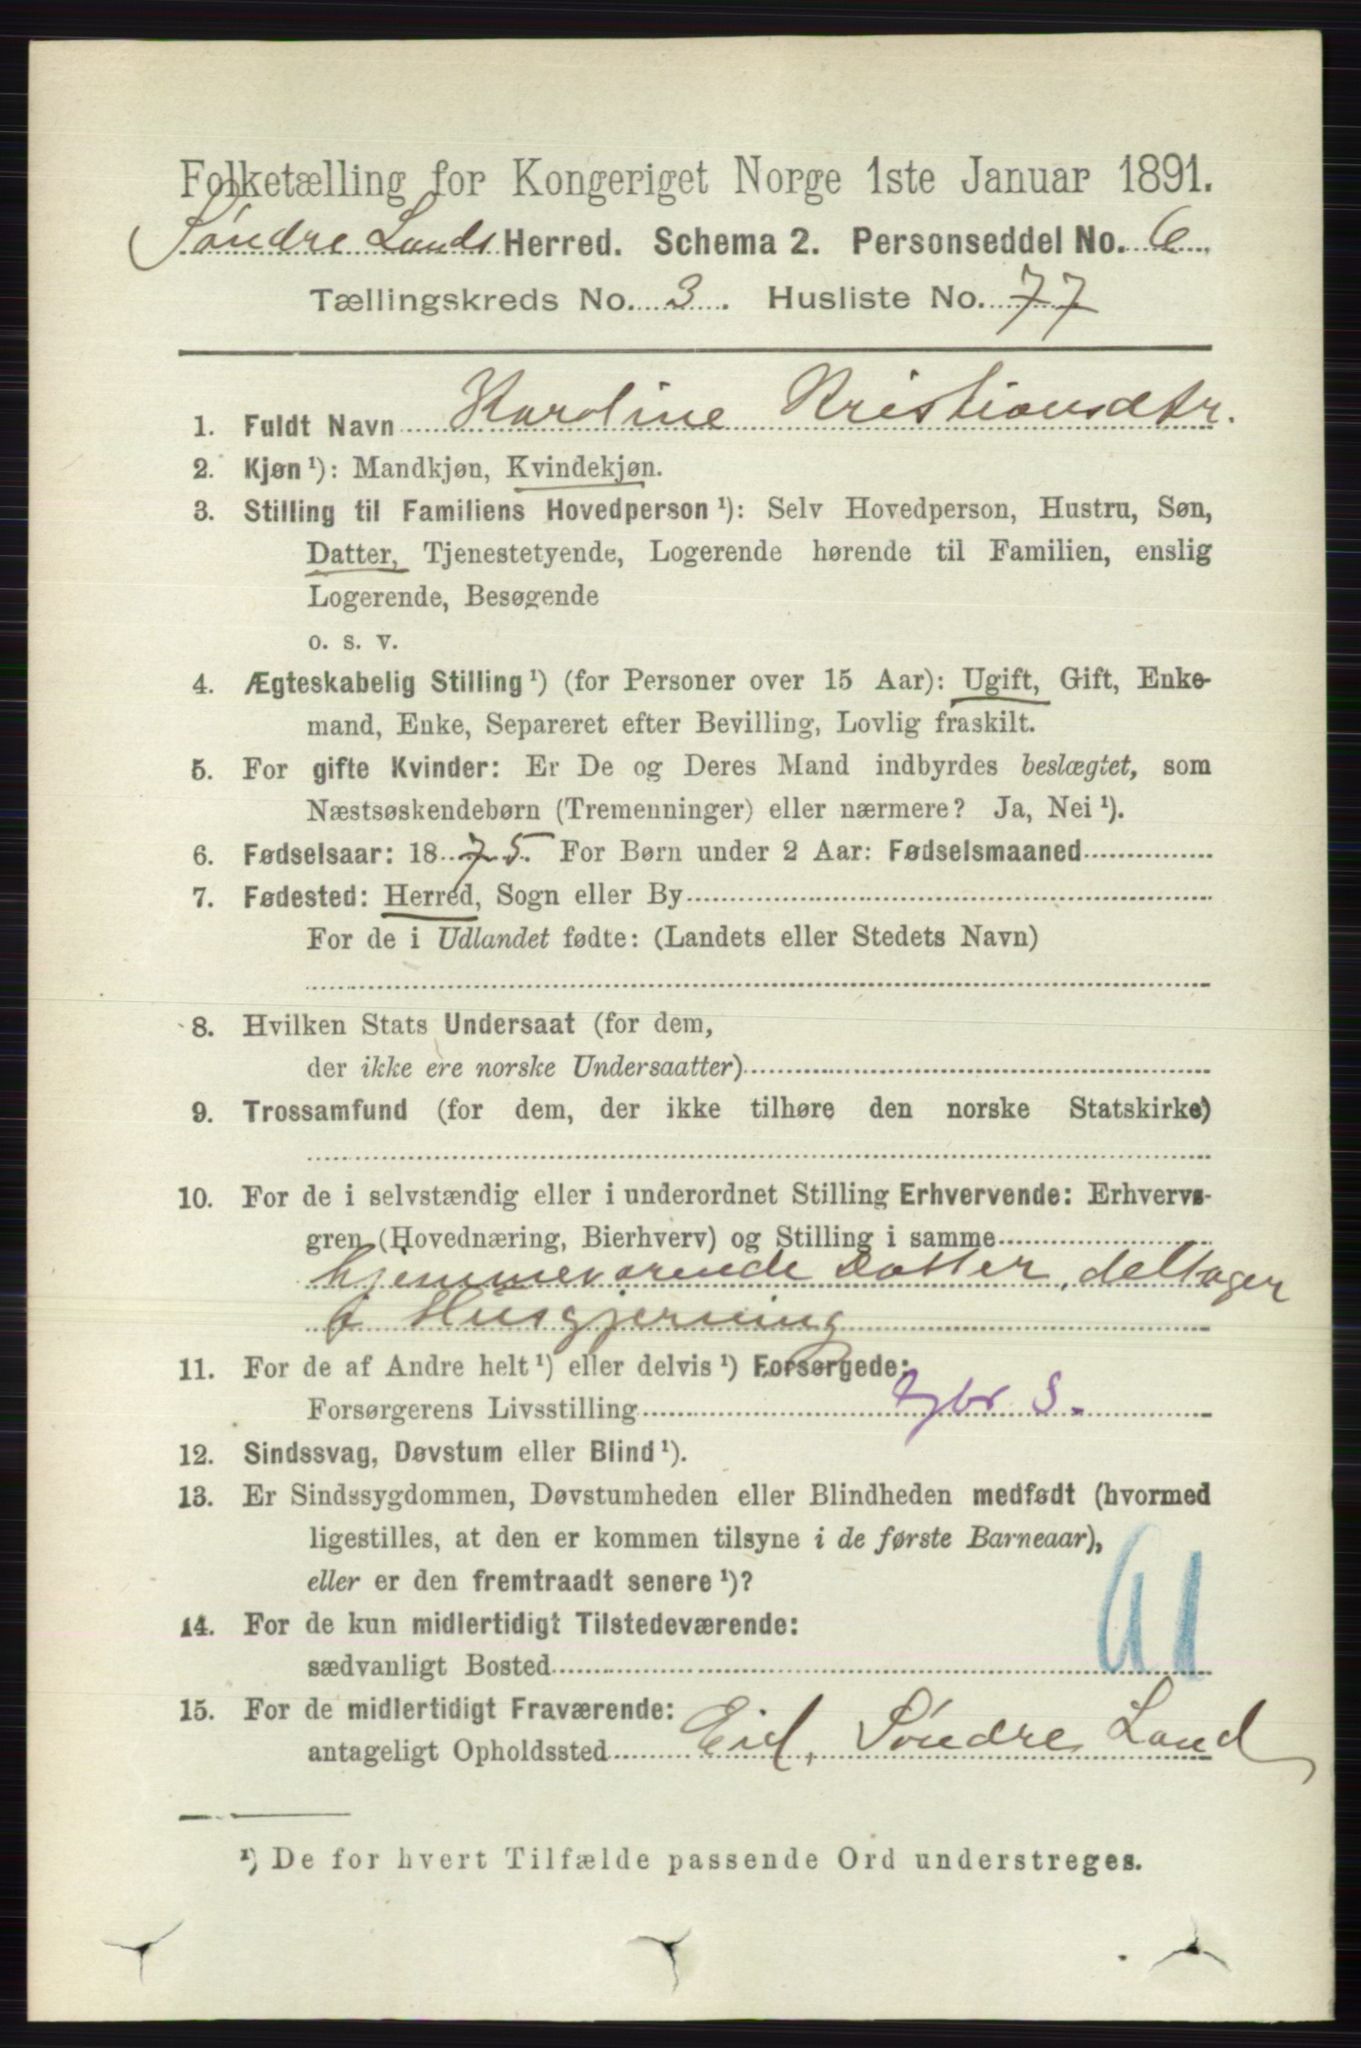 Folketælling for Kongeriget Norge 1ste Januar 1891.
Søndre Lands Herred. Schema 2. Personseddel No. 6
Tællingskreds No. 3. Husliste No. 77
1. Fuldt Navn Karoline Kristiansdtr.
2. Kjøn ¹): Mandkjøn, Kvindekjøn.
3. Stilling til Familiens Hovedperson ¹): Selv Hovedperson, Hustru, Søn,
Datter, Tjenestetyende, Logerende hørende til Familien, enslig
Logerende, Besøgende
o. s. v.
4. Ægteskabelig Stilling ¹) (for Personer over 15 Aar): Ugift, Gift, Enke-
mand, Enke, Separeret efter Bevilling, Lovlig fraskilt.
5. For gifte Kvinder: Er De og Deres Mand indbyrdes beslægtet, som
Næstsøskendebørn (Tremenninger) eller nærmere? Ja, Nei ¹).
6. Fødselsaar: 1875. For Børn under 2 Aar: Fødselsmaaned
7. Fødested: Herred, Sogn eller By
For de i Udlandet fødte: (Landets eller Stedets Navn)
8. Hvilken Stats Undersaat (for dem,
der ikke ere norske Undersaatter)
9. Trossamfund (for dem, der ikke tilhøre den norske Statskirke)
10. For de i selvstændig eller i underordnet Stilling Erhvervende: Erhvervs-
gren (Hovednæring, Bierhverv) og Stilling i samme
hjemmeværende Datter, deltager
i Husgjerning
11. For de af Andre helt ¹) eller delvis ¹) Forsørgede:
Forsørgerens Livsstilling gbr S.
12. Sindssvag, Døvstum eller Blind ¹).
13. Er Sindssygdommen, Døvstumheden eller Blindheden medfødt (hvormed
ligestilles, at den er kommen tilsyne i de første Barneaar),
eller er den fremtraadt senere ¹)?
14. For de kun midlertidigt Tilstedeværende:
sædvanligt Bosted
15. For de midlertidigt Fraværende:
antageligt Opholdssted Eid, Søndre Land
¹) De for hvert Tilfælde passende Ord understreges.